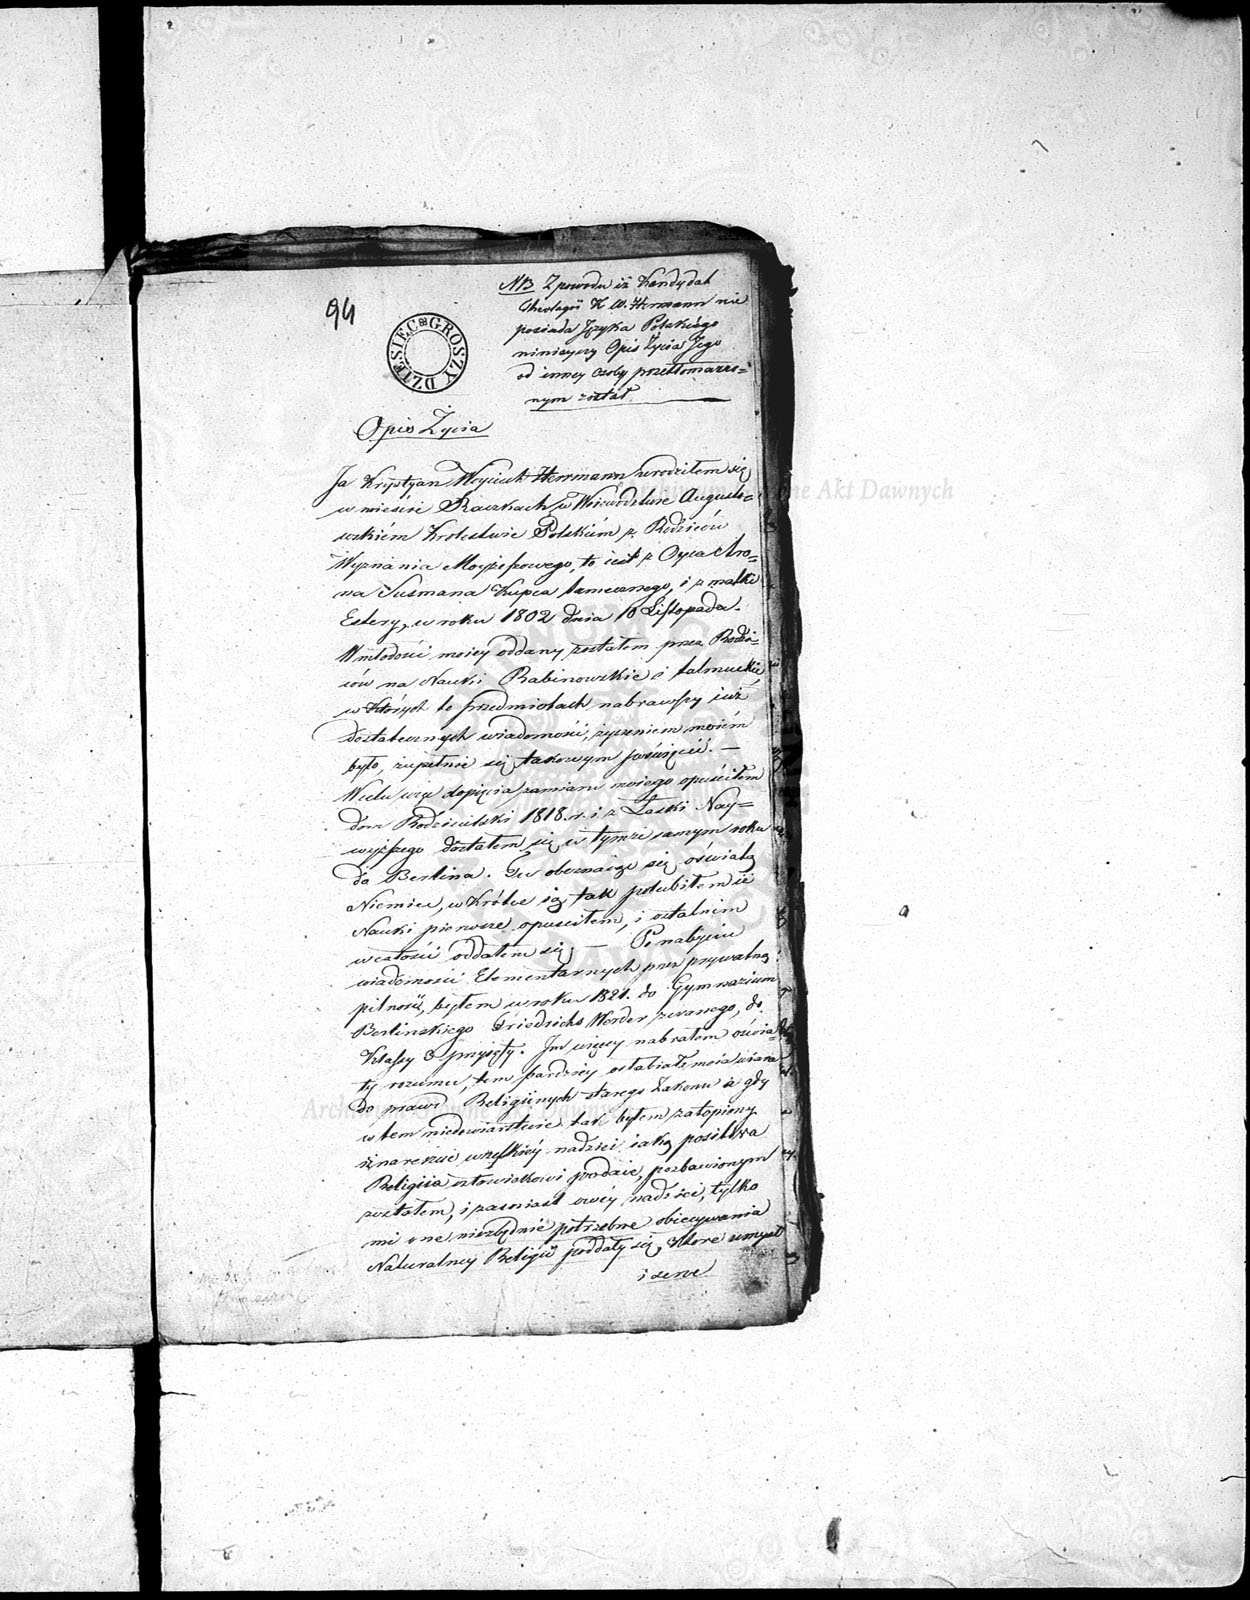 94
DZIESIEC GROSZY
NB Z powodu iż Kandydat
Theologii K W. Hermann nie
posiada Języka Polskiego
ninieyszy Opis Życia Jego
od inney osoby przetłomaczo=
nym został.
Opis Życia
Ja Krystyan Woyciech Herrmann urodziłem się
w mieście Raczkach w Woiewodztwie Augusto=
wskiém Krolestwie Polskiém z Rodziców
Wyznania Moyżeszowego, to iest z Oyca Aro=
na Susmana Kupca tamecznego, i z matki
Estery, w roku 1802 dnia 10 Listopada.
W młodości moiey oddany zostałem przez Rodzi=
ców na Nauki Rabinowskie i talmuckie
w których to przedmiotach nabrawszy iuż
dostatecznych wiadomość, życzeniem moiém
było, zupełnie się takowym poświęcić. —
W celu więc dopięcia zamiaru moiego opuściłem
dom Rodzicielski 1818. r. i z Łaski Nay=
wyższego dostałem się w tymże samym roku
do Berlina. Tu obeznaiąc się oświatą
Niemiec, w krótce ią tak polubiłem iż
Nauki pierwsze opuściłem, i ostatnim
w całości oddałem się — Po nabyciu
wiadomości Elementarnych przez prywatną
pilność, byłem w roku 1821. do Gymnazium
Berlinskiego Friedrichs Werder zwanego, do
Klassy 3 przyięty. Im więcey nabrałem oświa=
ty rozumu, tem bardziey osłabiała moia wiara
do prawd Religiinych starego Zakonu a gdy
w tem niedowiarstwie tak byłem zatopiony
iż nareszcie wszelkiéy nadziei iaką posiłku
Religiia człowiekowi podaie, pozbawionym
zostałem, i zamiast owéy nadziei, tylko
mi one niezbędnie potrzebne obiecywania
Naturalney Religii poddały się, które umysł
i serce
Archiwum Główne Akt Dawnych
Archiwum Główne Akt Dawnych